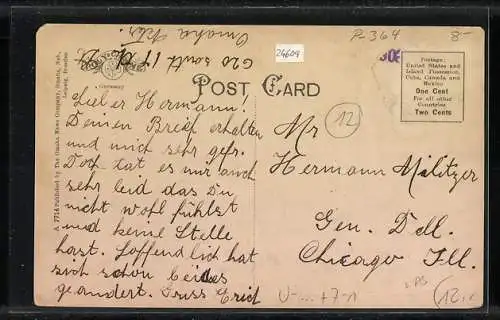 Omaha Nebr.
620 south 17
R-364
8-
24604
Germany
POST CARD
Postage:
United States and
Island Possessions,
Cuba, Canada, and
Mexico
One Cent
For all other
Countries
Two Cents
A 7714 Published by The Omaha News Company, Omaha, Neb.
Leipzig, Dresden
Lieber Hermann!
Deinen Brief erhalten
und mich sehr gefr.
Doch tat es mir auch
sehr leid das Du
nicht wohl fühlst
und keine Stelle
hast. Hoffendlich hat
sich schon beides
geandert. Gruss Erich
12
Mr
Hermann Militzer
Gen. Dell.
Chicago Ill.